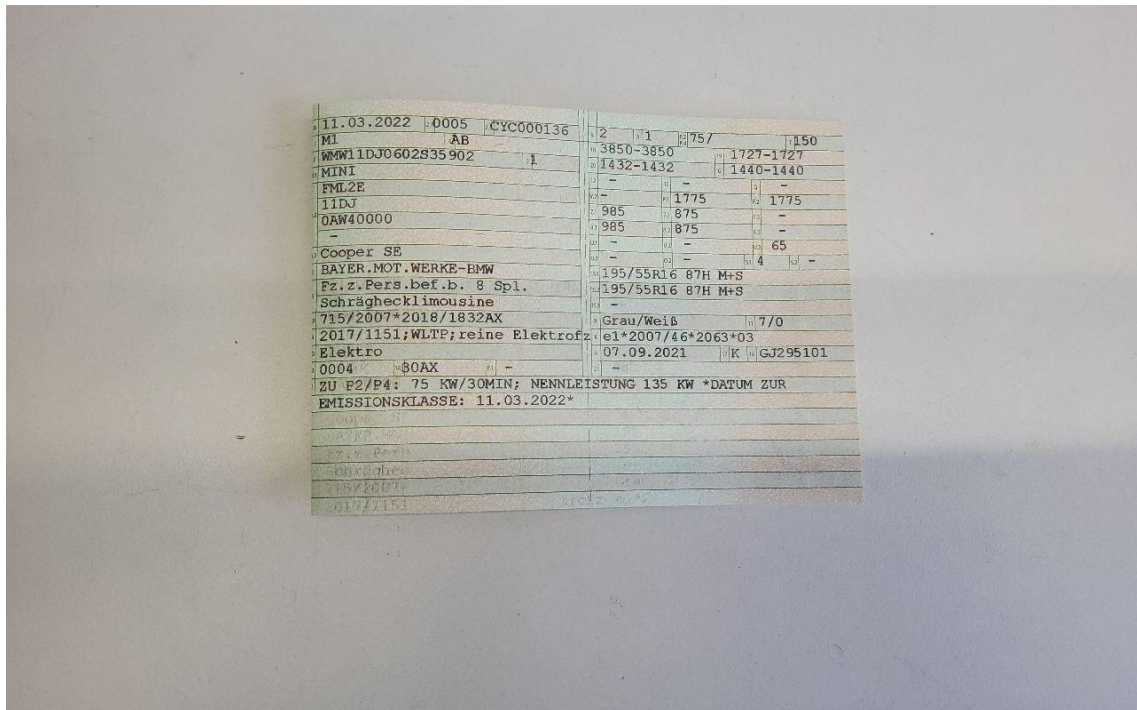 11.03.2022 0005 CYC000136
M1 AB
WMW11DJ0602S35902 1
MINI
FML2E
11DJ
0AW40000
-
Cooper SE
BAYER.MOT.WERKE-BMW
Fz.z.Pers.bef.b. 8 Spl.
Schräghecklimousine
715/2007*2018/1832AX
2017/1151;WLTP;reine Elektrofz
Elektro
0004 30AX -
2 1 75/ 150
3850-3850 1727-1727
1432-1432 1440-1440
- - -
- 1775 1775
985 875 -
985 875 -
- - 65
- - 4 -
195/55R16 87H M+S
195/55R16 87H M+S
-
Grau/Weiß 7/0
e1*2007/46*2063*03
07.09.2021 K GJ295101
-
ZU P2/P4: 75 KW/30MIN; NENNLEISTUNG 135 KW *DATUM ZUR
EMISSIONSKLASSE: 11.03.2022*